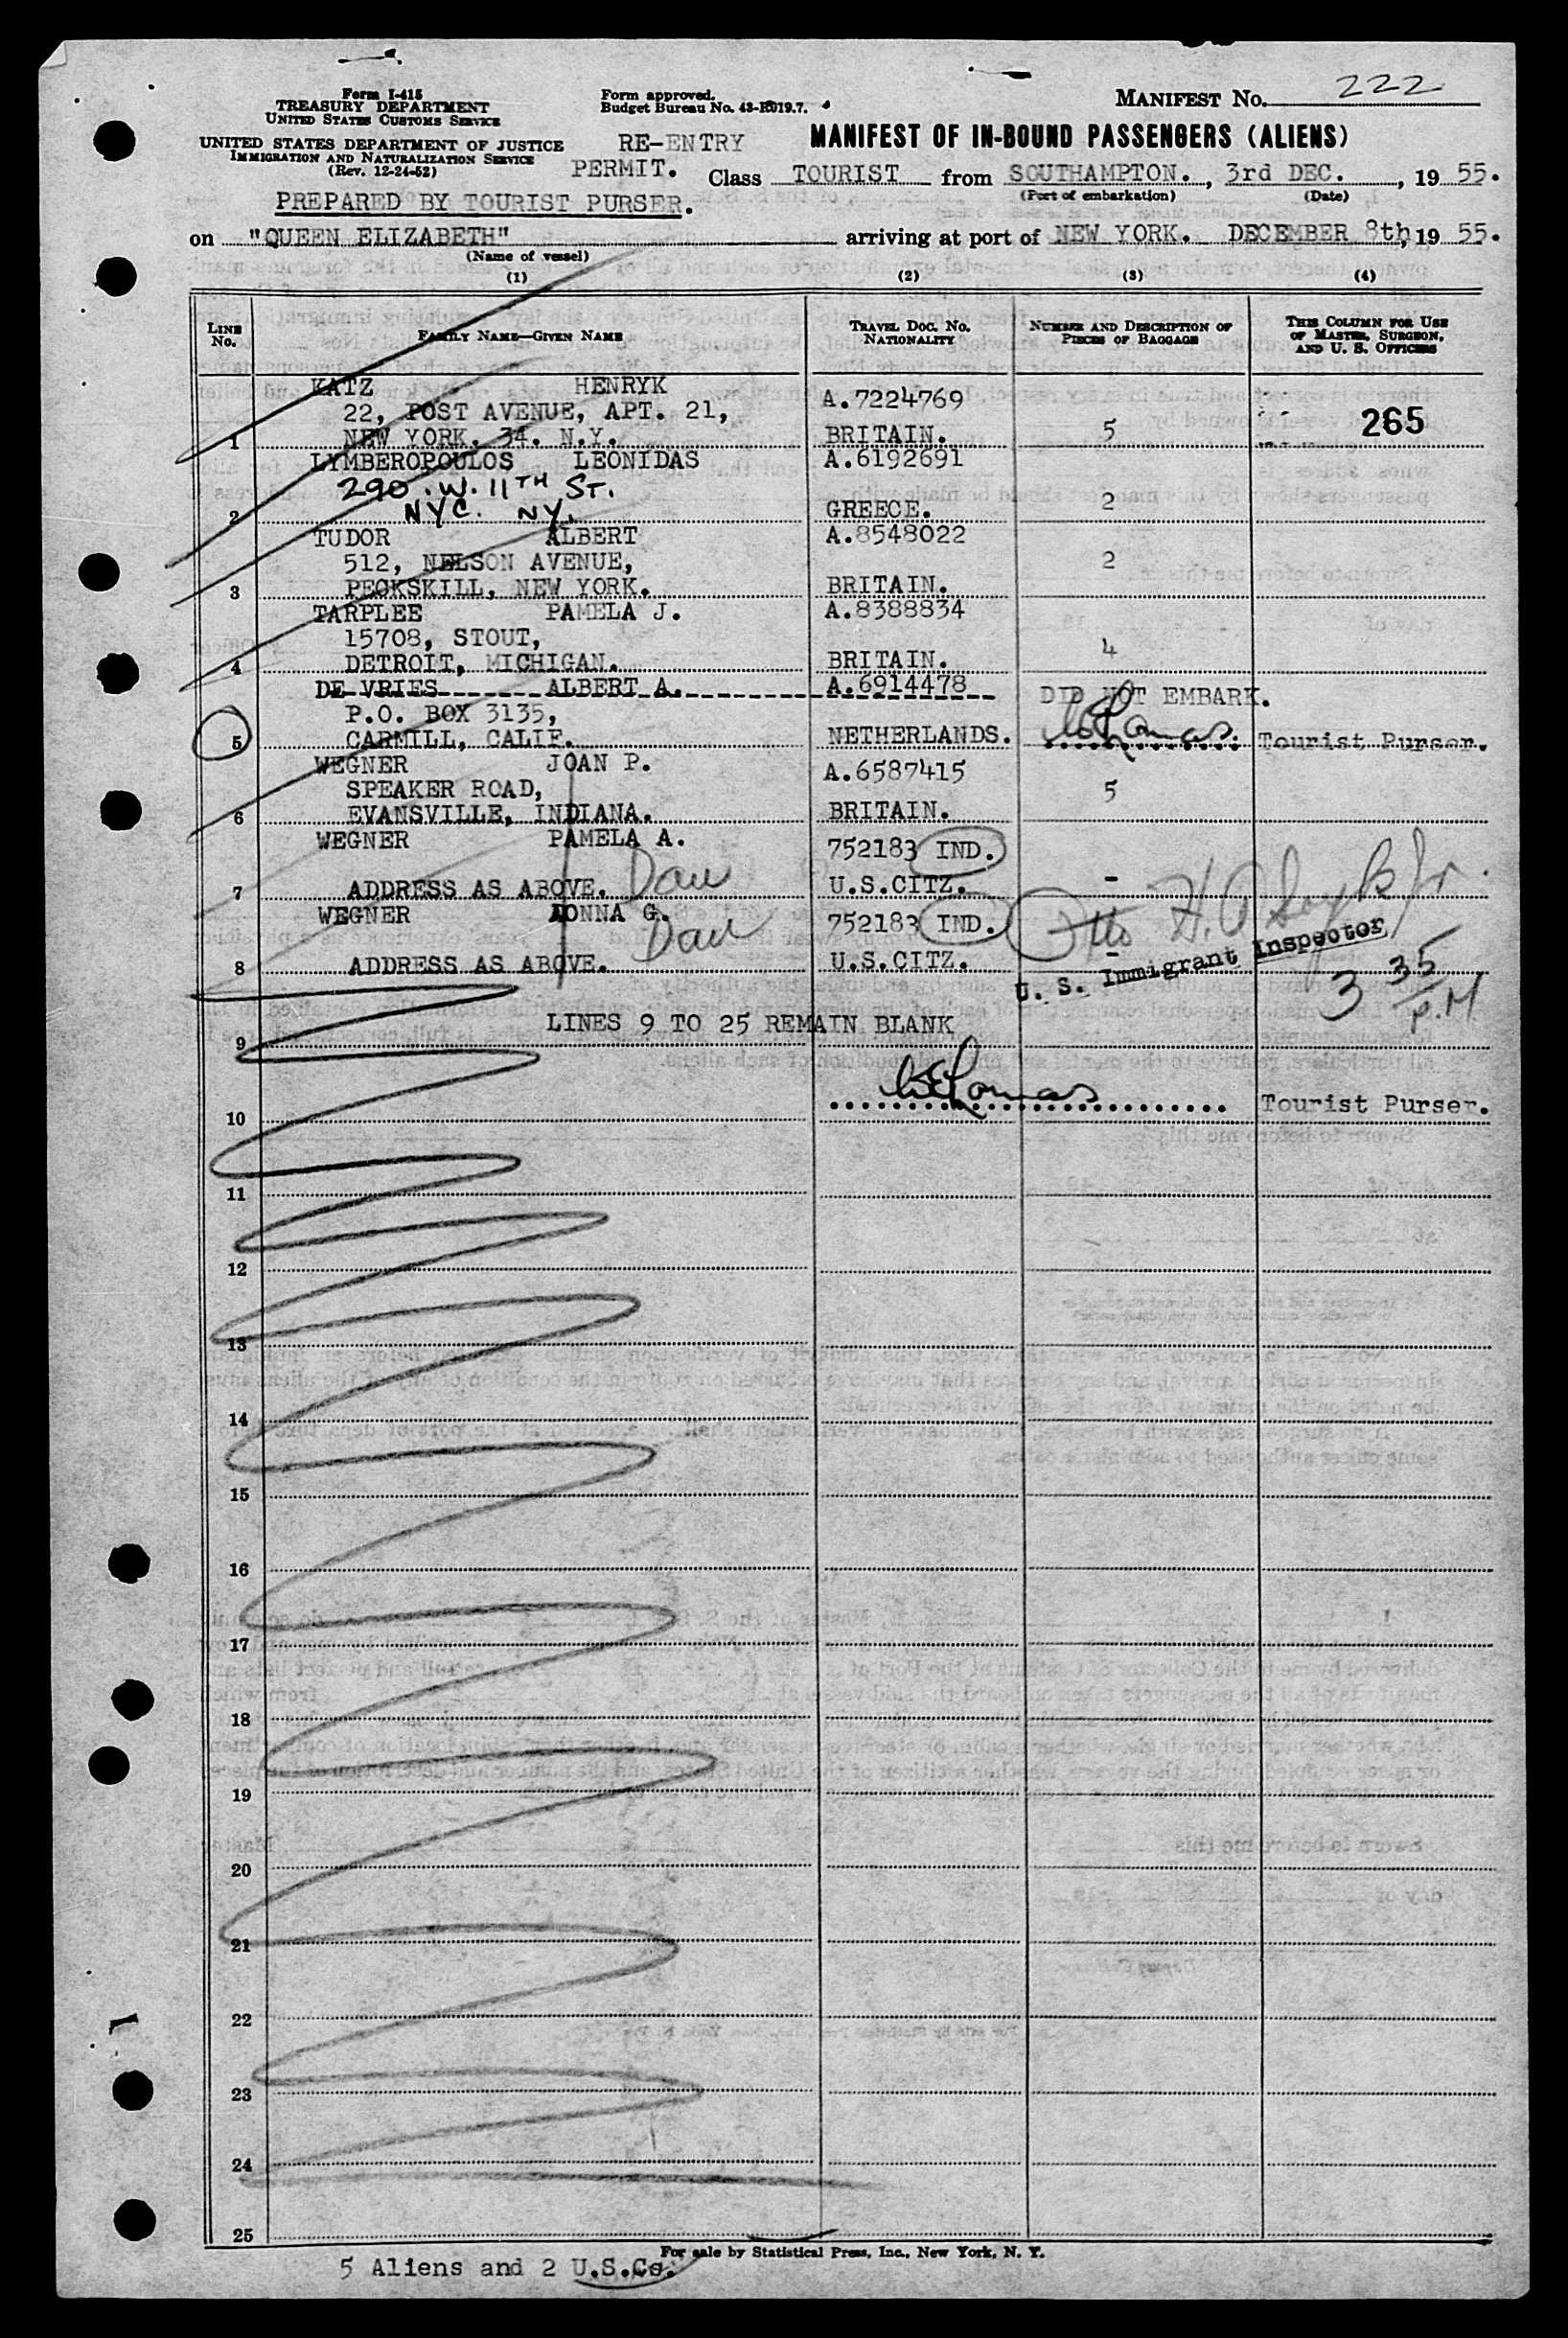 Form I-415
TREASURY DEPARTMENT
UNITED STATES CUSTOMS SERVICE
UNITED STATES DEPARTMENT OF JUSTICE
IMMIGRATION AND NATURALIZATION SERVICE
(Rev. 12-24-52)
PREPARED BY TOURIST PURSER.
Form approved.
Budget Bureau No. 43-R019.7.
RE-ENTRY
PERMIT.
MANIFEST NO. 222
MANIFEST OF IN-BOUND PASSENGERS (ALIENS)
Class TOURIST from SOUTHAMPTON., 3rd DEC., 19 55.
(Port of embarkation) (Date)
on "QUEEN ELIZABETH" arriving at port of NEW YORK. DECEMBER 8th, 19 55.
(Name of vessel)
(1) (2) (3) (4)
LINE NO. FAMILY NAME—GIVEN NAME TRAVEL DOC. NO. NATIONALITY NUMBER AND DESCRIPTION OF PIECES OF BAGGAGE THIS COLUMN FOR USE OF MASTER, SURGEON, AND U. S. OFFICERS
KATZ HENRYK A.7224769
22, POST AVENUE, APT. 21, 265
1 NEW YORK. 34. N.Y. BRITAIN. 5
LYMBEROPOULOS LEONIDAS A.6192691
290. W. 11TH ST.
2 NYC. NY. GREECE. 2
TUDOR ALBERT A.8548022
512, NELSON AVENUE, 2
3 PECKSKILL, NEW YORK. BRITAIN.
TARPLEE PAMELA J. A.8388834
15708, STOUT,
4 DETROIT, MICHIGAN. BRITAIN. 4
DE VRIES ALBERT A. A.6914478 DID NOT EMBARK.
P.O. BOX 3135,
5 CARMILL, CALIF. NETHERLANDS. Tourist Purser.
WEGNER JOAN P. A.6587415
SPEAKER ROAD, 5
6 EVANSVILLE, INDIANA. BRITAIN.
WEGNER PAMELA A. 752183 IND.
Dau
7 ADDRESS AS ABOVE. U.S.CITZ. -
WEGNER DONNA G. 752183 IND.
Dau
8 ADDRESS AS ABOVE. U.S.CITZ. -
U. S. Immigrant Inspector
3 35 P.M
LINES 9 TO 25 REMAIN BLANK
9
10 Tourist Purser.
11
12
13
14
15
16
17
18
19
20
21
22
23
24
25
For sale by Statistical Press, Inc., New York, N. Y.
5 Aliens and 2 U.S.Cs.